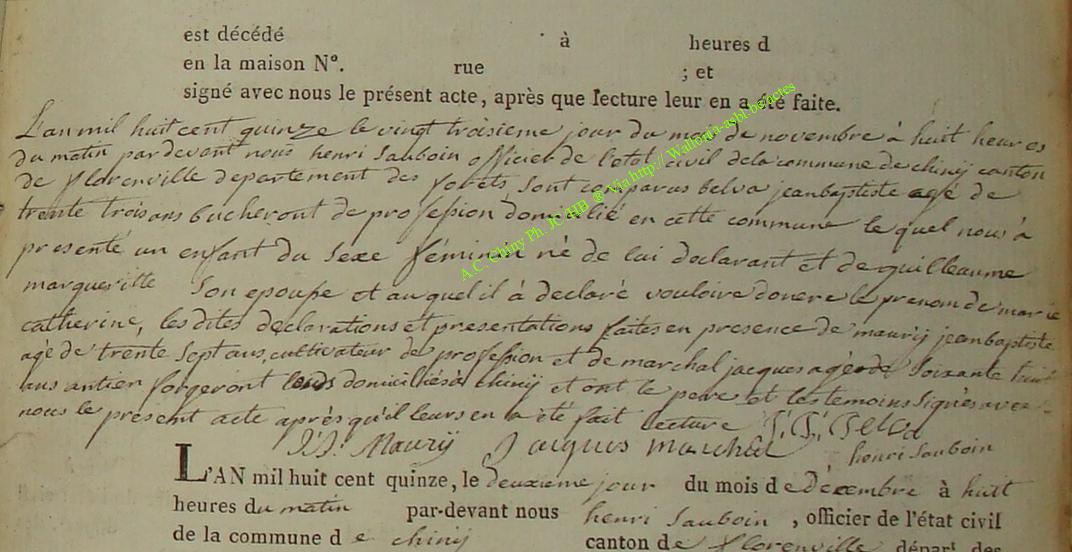 est décédé à heures d
en la maison N°. rue ; et
signé avec nous le présent acte, après que lecture leur en a été faite.
L'an mil huit cent quinze le vingt troisieme jour du mois de novembre à huit heures
du matin par devant nous henri Sauboin officier de l'etat civil de la commune de chinÿ canton
de florenville departement des forets, sont comparus belva jeanbaptiste agé de
trente trois ans bucheront de profession domicilié en cette commune le quel nous à
presenté un enfant du sexe féminin né de lui declarant et de guilleaume
margueritte son epouse et auquel il à declaré vouloire donere le prenom de marie
catherine, les dites declarations et presentations faites en presence de maurÿ jeanbaptiste
agé de trente sept ans, cultivateur de profession et de marchal jacques agé de soixante huit
ans antien forgeront domiciliés à chinÿ et ont le pere et les temoins signés avec
nous le présent acte après qu'il leurs en a été fait lecture J. B. Belva
J. B. Maurÿ Jacques Marchal henri Sauboin
L'AN mil huit cent quinze, le deuxieme jour du mois de Décembre à huit
heures du matin par-devant nous henri Sauboin, officier de l'état civil
de la commune de chinÿ canton de florenville départ. des
A.C. Chiny Ph. JC HB @ Via http:// Wallonia-asbl.be/actes